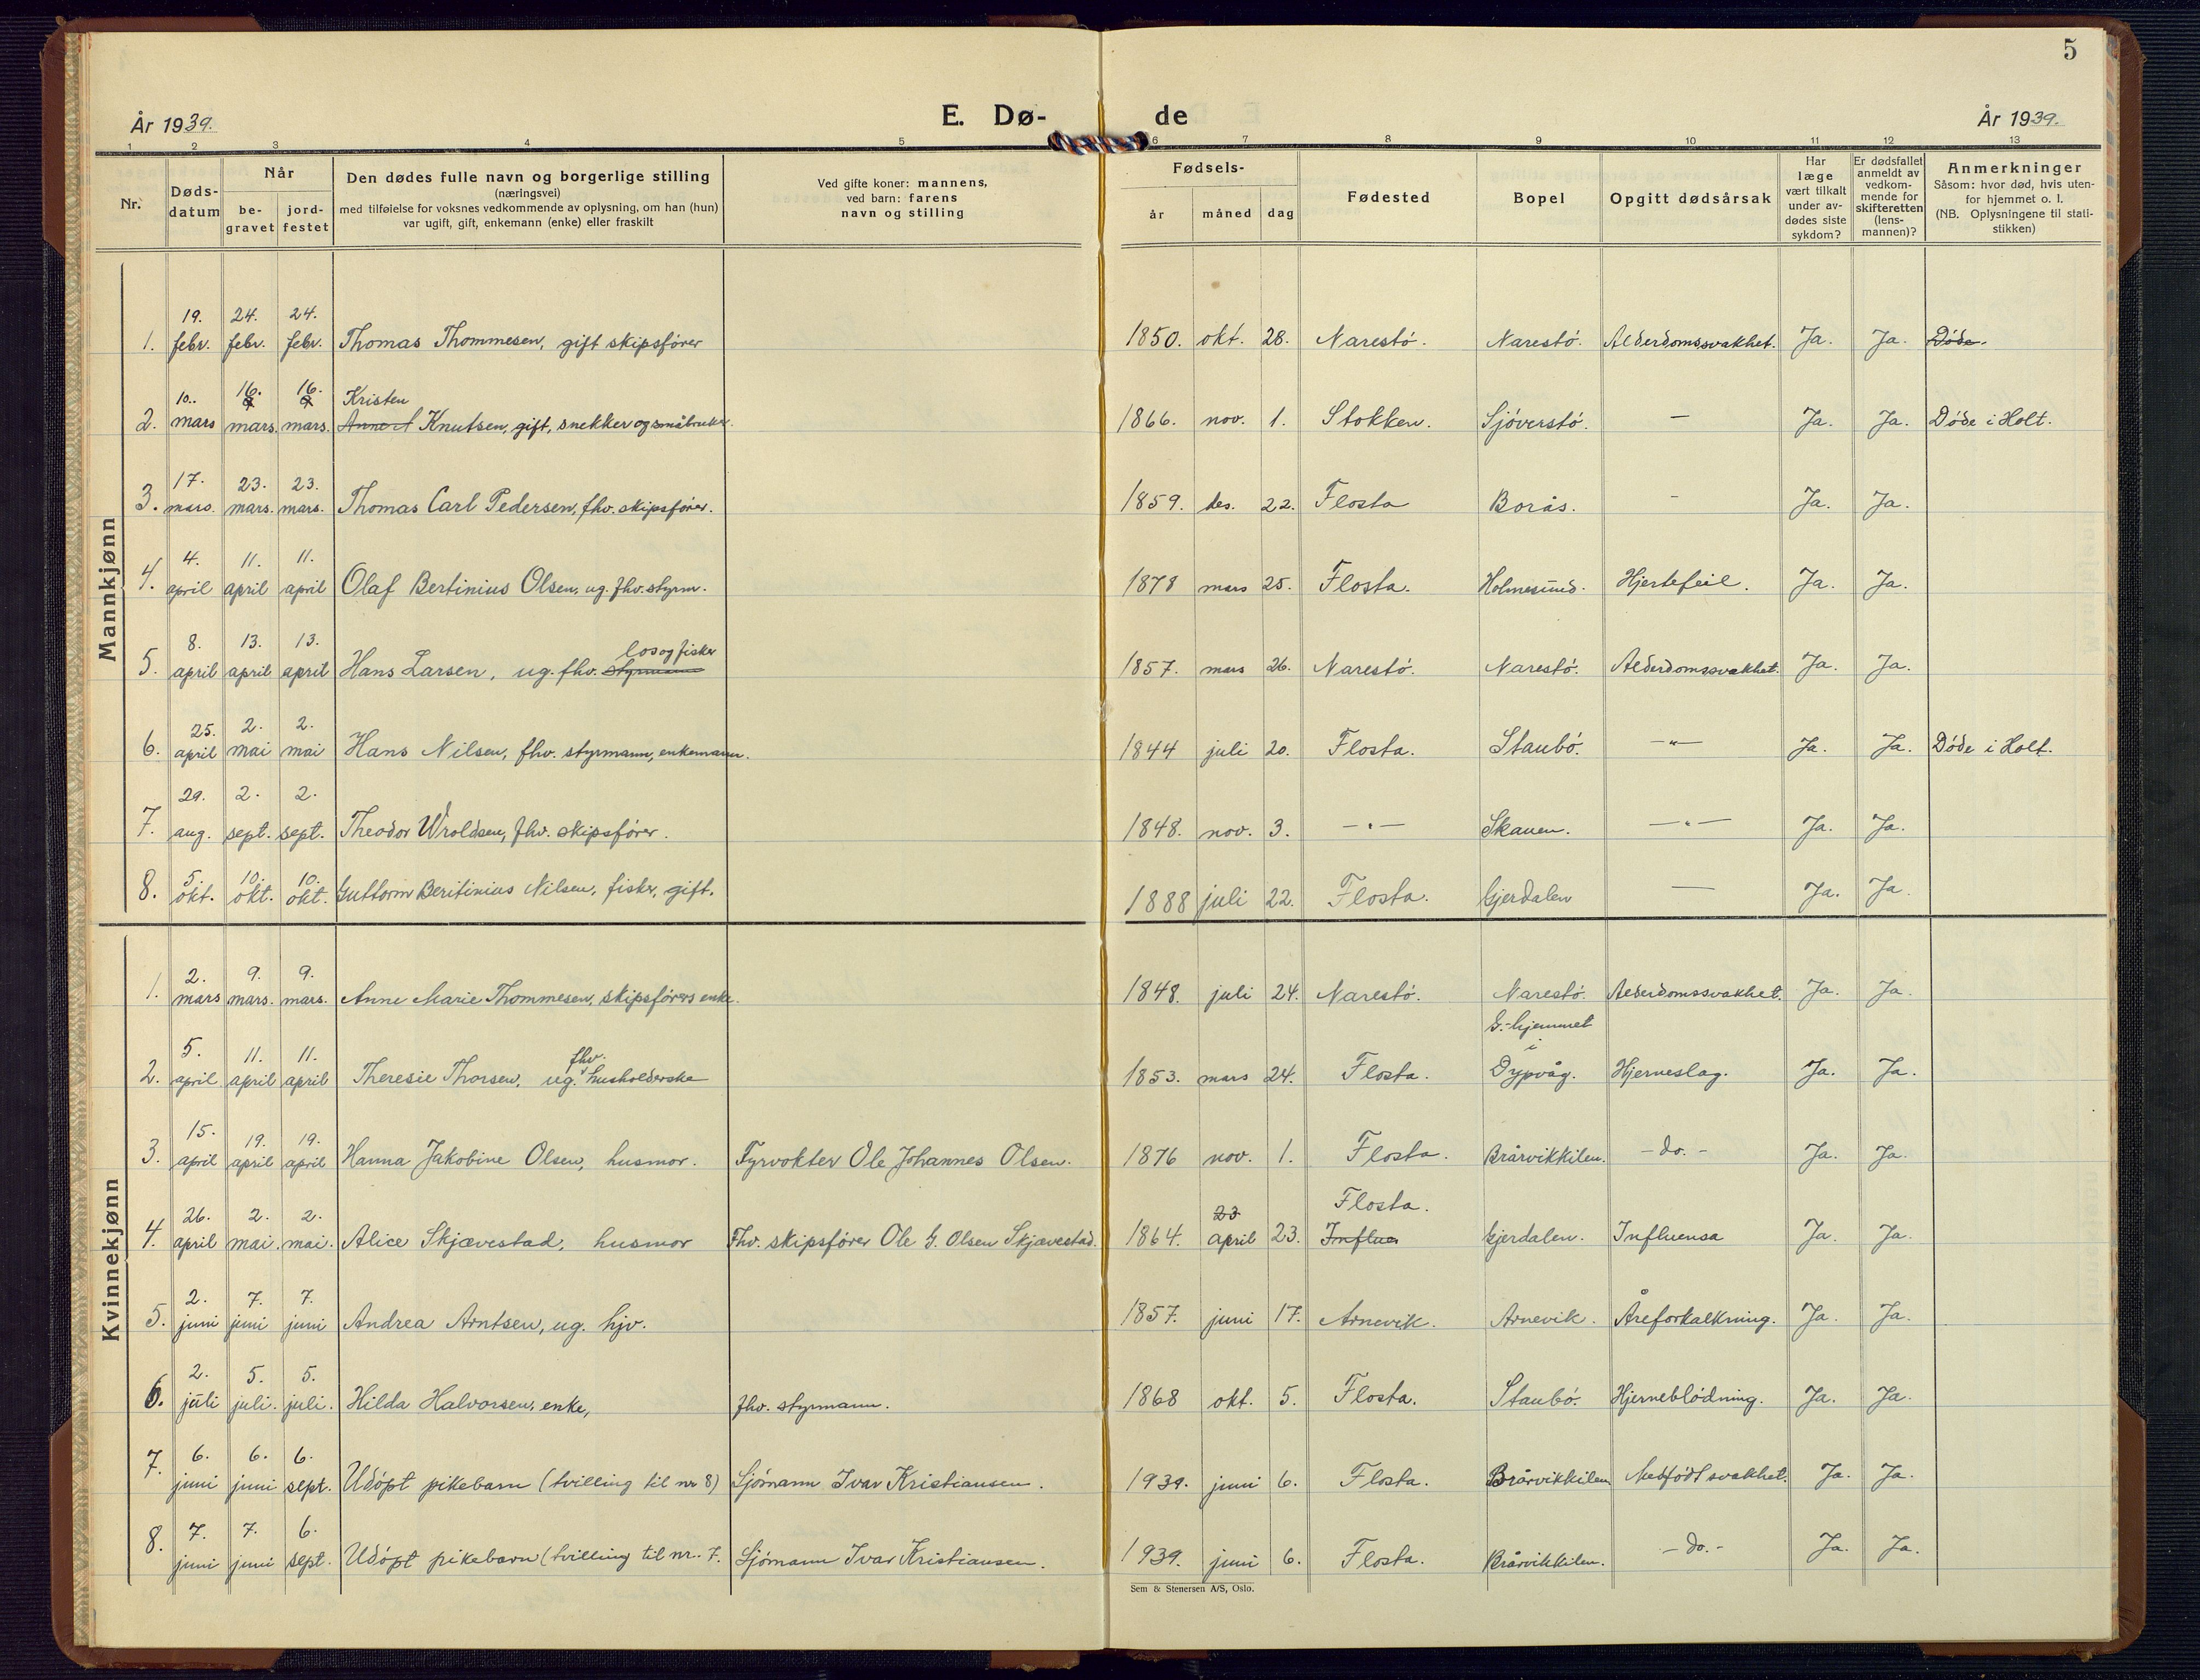 5
År 1939.
E. Dø-
de
År 1939.
1 2 3 4 5 6 7 8 9 10 11 12 13
Nr.
Døds-
datum
Når
be-
gravet
jord-
festet
Den dødes fulle navn og borgerlige stilling
(næringsvei)
med tilføielse for voksnes vedkommende av oplysning, om han (hun)
var ugift, gift, enkemann (enke) eller fraskilt
Ved gifte koner: mannens,
ved barn: farens
navn og stilling
Fødsels-
år måned dag
Fødested
Bopel
Opgitt dødsårsak
Har
læge
vært tilkalt
under av-
dødes siste
sykdom?
Er dødsfallet
anmeldt av
vedkom-
mende for
skifteretten
(lens-
mannen)?
Anmerkninger
Såsom: hvor død, hvis uten-
for hjemmet o. l.
(NB. Oplysningene til stati-
stikken)
Mannkjønn
19. 24. 24.
1. febr. febr. febr. Thomas Thommesen, gift skipsfører 1850. okt. 28. Narestø. Narestø. Alderdomssvakhet. Ja. Ja. Døde.
10. 16. 16. Kristen
2. mars mars. mars. Anne A Knutsen, gift, snekker og småbruker. 1866. nov. 1. Stokken. Sjøverstø. — Ja. Ja. Døde i Holt.
17. 23. 23.
3. mars. mars. mars. Thomas Carl Pedersen, fhv. skipsfører. 1859. des. 22. Flosta Borås. - Ja. Ja.
4. 11. 11.
4. april april april Olaf Bertinius Olsen, ug. fhv. styrm. 1878 mars 25. Flosta. Holmesund. Hjertefeil. Ja. Ja.
8. 13. 13. los og fisker
5. april april april Hans Larsen, ug. fhv. styrmann 1857. mars 26. Narestø. Narestø. Alderdomssvakhet. Ja. Ja.
25. 2. 2.
6. april mai mai Hans Nilsen, fhv. styrmann, enkemann. 1844 juli 20. Flosta. Staubø. —"— Ja. Ja. Døde i Holt.
29. 2. 2.
7. aug. sept. sept. Theodor Wroldsen, fhv. skipsfører. 1848. nov. 3. —"— Skauen. —"— Ja. Ja.
5. 10. 10.
8. okt. okt. okt. Guttorm Beritinius Nilsen, fisker, gift. 1888 juli 22. Flosta. Gjerdalen — Ja. Ja.
Kvinnekjønn
2. 9. 9.
1. mars mars. mars. Anne Marie Thommesen, skipsførers enke. 1848. juli 24. Narestø. Narestø. Alderdomssvakhet. Ja. Ja.
G.-hjemmet
i
5. 11. 11. fhv.
2. april april april Theresie Thorsen, ug. husholderske 1853. mars 24. Flosta. Dypvåg. Hjerneslag. Ja. Ja.
15. 19. 19.
3. april april april Hanna Jakobine Olsen, husmor. Fyrvokter Ole Johannes Olsen. 1876 nov. 1. Flosta. Brårvikkilen. - do. - Ja. Ja.
26. 2. 2. 23 Flosta.
4. april mai. mai. Alice Skjævestad, husmor Fhv. skipsfører Ole G. Olsen Skjævestad. 1864. april 23. Influen Gjerdalen. Influensa Ja. Ja.
2. 7. 7.
5. juni juni juni Andrea Arntsen, ug. hjv. 1857. juni 17. Arnevik. Arnevik. Åreforkalkning. Ja. Ja.
2. 5. 5.
6. juli juli. juli. Hilda Halvorsen, enke, fhv. styrmann. 1868 okt. 5. Flosta. Staubø. Hjerneblødning. Ja. Ja.
6. 6. 6.
7. juni juni sept. Udøpt pikebarn (tvilling til nr 8) Sjømann Ivar Kristiansen. 1939. juni 6. Flosta. Brårvikkilen Medfødt svakhet. Ja. Ja.
7. 7. 6.
8. juni juni sept. Udøpt pikebarn (tvilling til nr. 7. Sjømann Ivar Kristiansen. 1939. juni 6. Flosta. Brårvikkilen. - do. - Ja. Ja.
Sem & Stenersen A/S, Oslo.